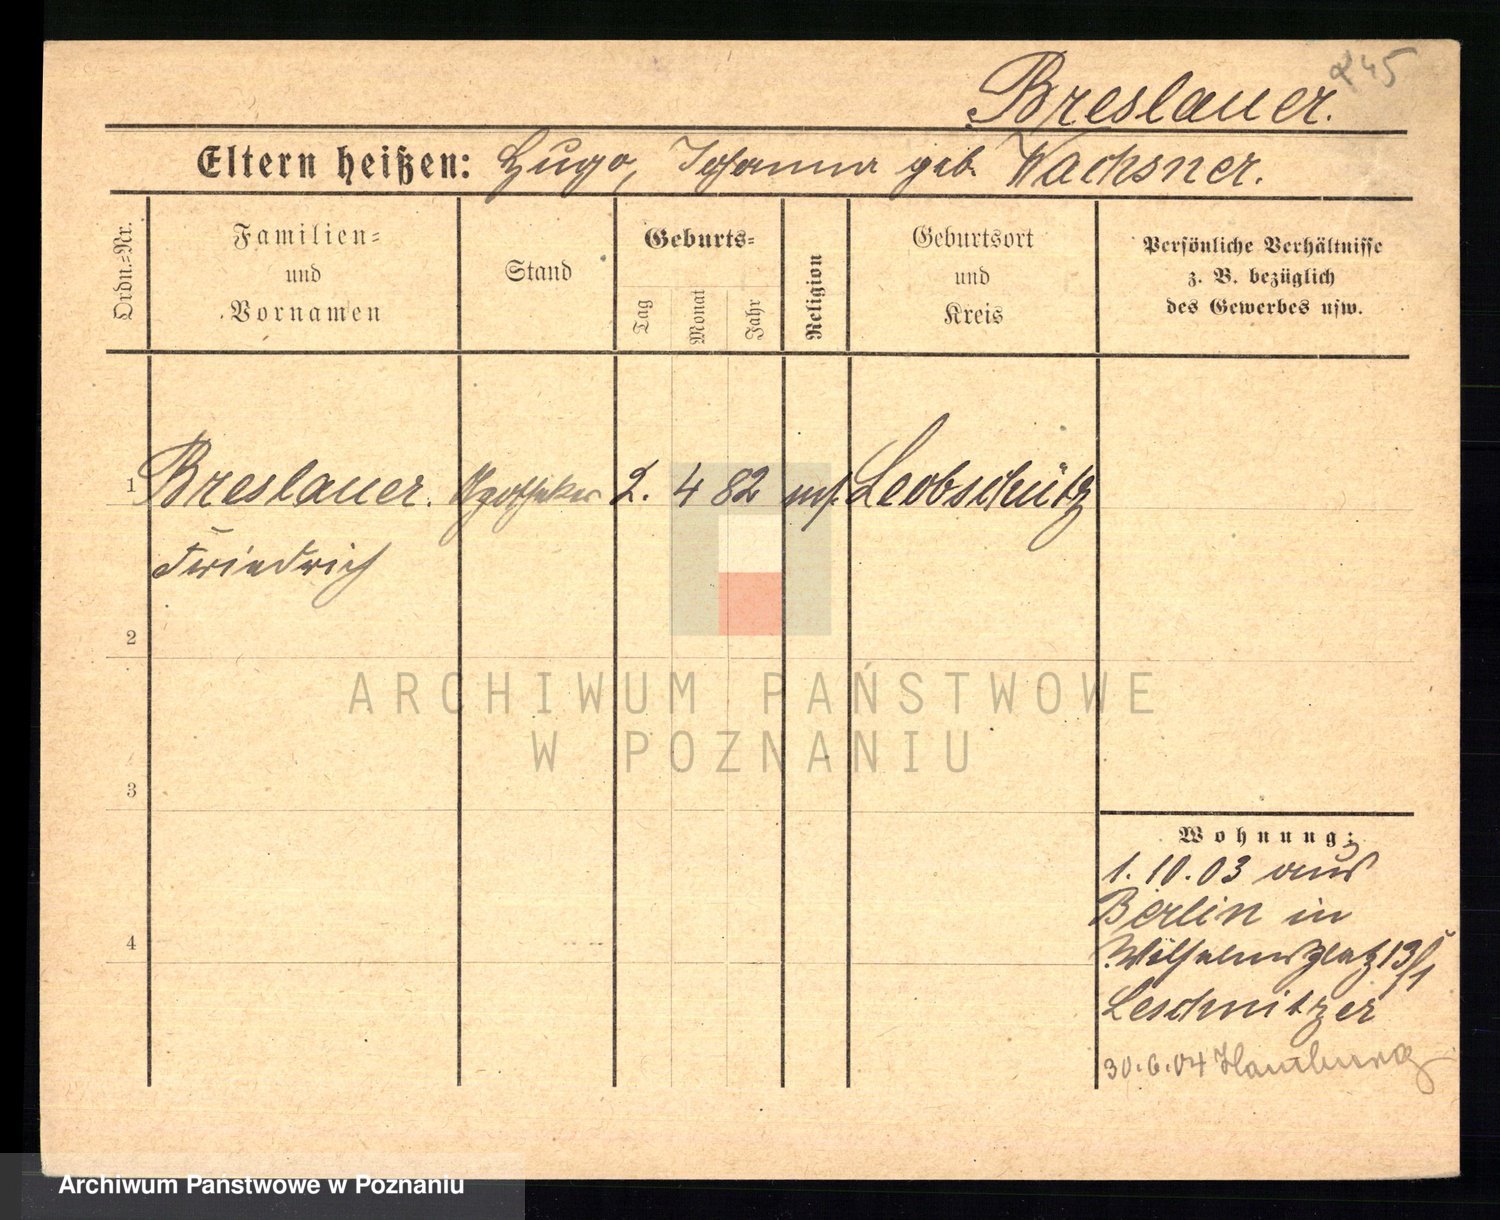 245
Breslauer.
Eltern heißen: Hugo, Johanna geb. Wachsner.
Ordn.=Nr.
Familien=
und
Vornamen
Stand
Geburts=
Tag
Monat
Jahr
Religion
Geburtsort
und
Kreis
Persönliche Verhältnisse
z. B. bezüglich
des Gewerbes usw.
1 Breslauer. Apotheker 2. 4 82 mos. Leobschütz
Friedrich
2
3
4
Wohnung:
1. 10. 03 aus
Berlin in
Wilhelmsplatz 13/1
Leschnitzer
30.6.04 Hamburg
ARCHIWUM PAŃSTWOWE
W POZNANIU
Archiwum Państwowe w Poznaniu